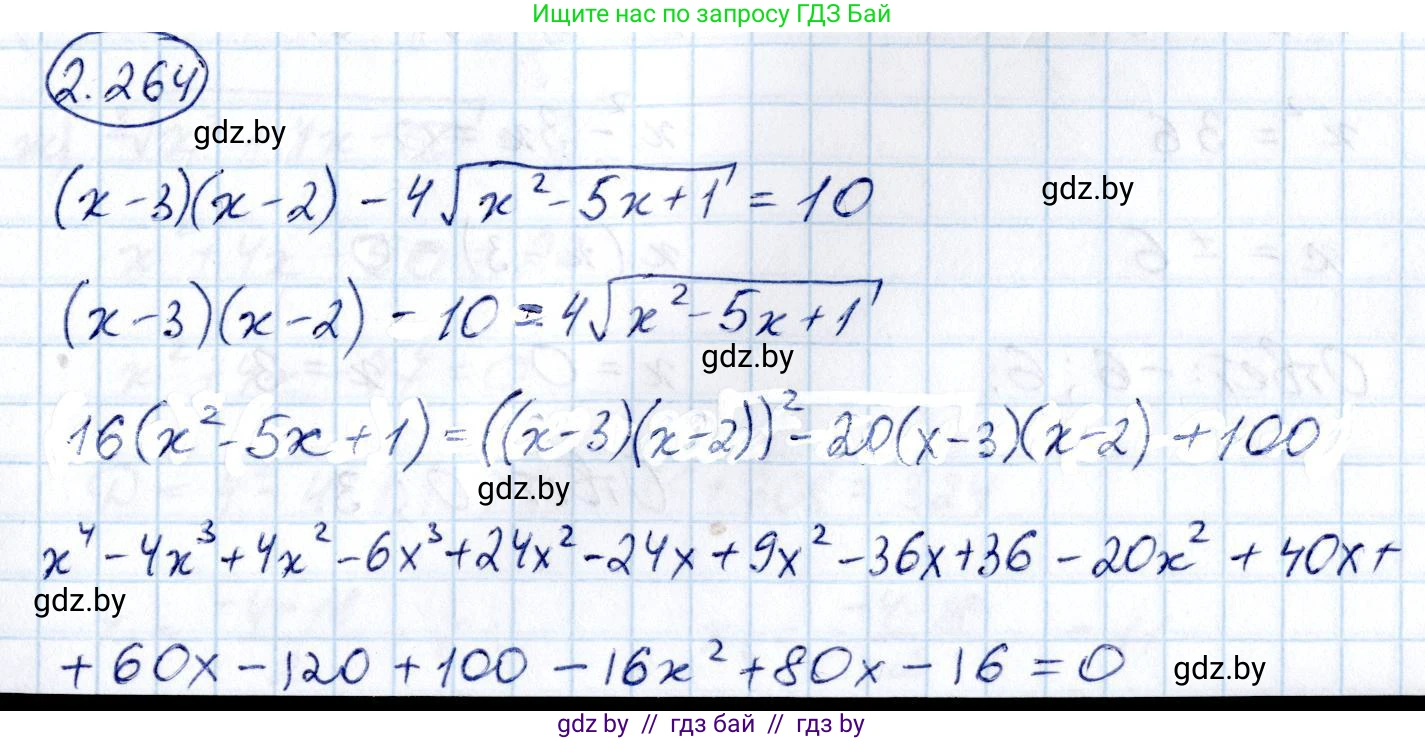 Ищите нас по запросу ГДЗ Бай
2.264
gdz.by
(x-3)(x-2) - 4√(x²-5x+1) = 10
gdz.by
(x-3)(x-2) - 10 = 4√(x²-5x+1)
gdz.by
16(x²-5x+1) = ((x-3)(x-2))² - 20(x-3)(x-2) + 100
gdz.by
x⁴ - 4x³ + 4x² - 6x³ + 24x² - 24x + 9x² - 36x + 36 - 20x² + 40x +
gdz.by
+ 60x - 120 + 100 - 16x² + 80x - 16 = 0
gdz.by
gdz by // гдз бай // гдз by